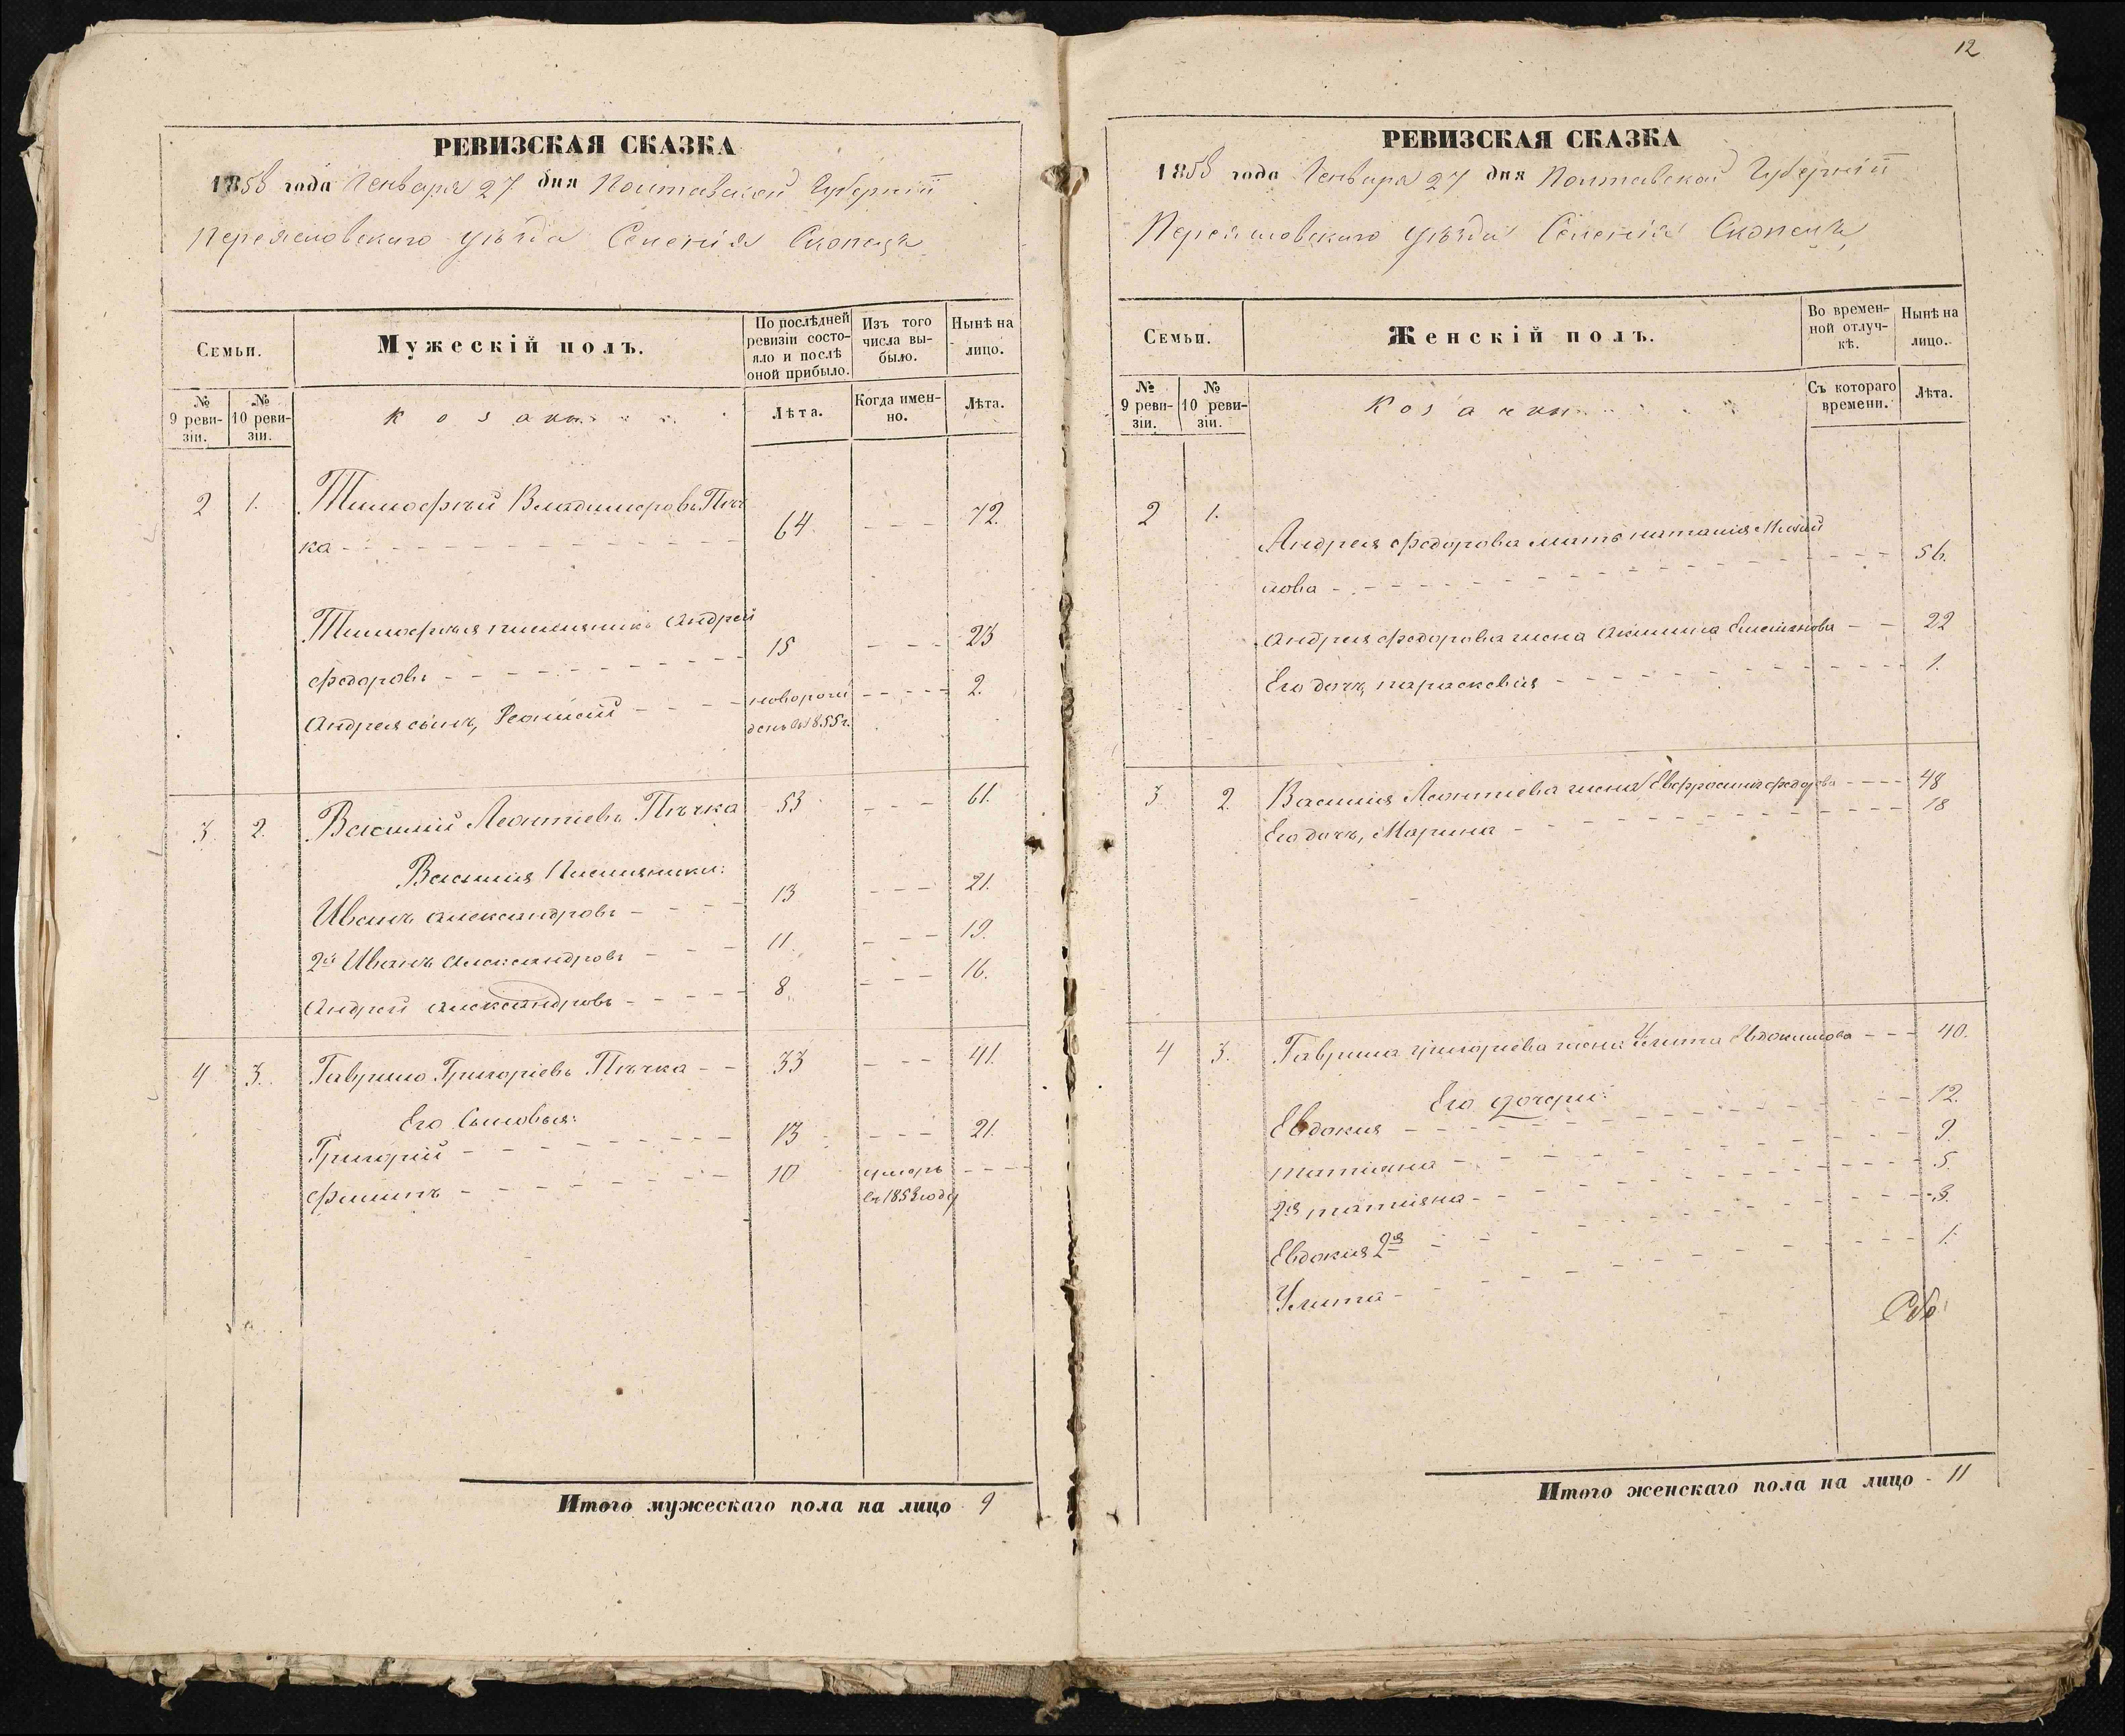 РЕВИЗСКАЯ СКАЗКА
1858 года Генваря 27 дня Полтавской Губерніи
Переясловскаго уѣзда Селенія Скопецъ
Семьи.
Мужескій полъ.
По послѣдней ревизіи состояло и послѣ оной прибыло.
Изъ того числа выбыло.
Нынѣ на лицо.
№ 9 ревизіи.
№ 10 ревизіи.
Козаки
Лѣта.
Когда именно.
Лѣта.
2 1. Тимофѣй Владимеровъ Пѣч
ка - - - 64 - - - 72.
Тимофѣя племянникъ Андрей
Федоровъ - - - 15 - - - 23
Андрея сынъ, - - - новорож - - - 2.
денъ въ 1855 г.
3. 2. Василий Леонтіевъ Пѣчка 53 - - - 61.
Василия Племянники:
Иванъ Александровъ - - - 13 - - - 21.
2й Иванъ Александровъ - - - 11. - - - 19.
Андрей Александровъ - - - 8. - - - 16.
4 3. Гаврило Григоріевъ Пѣчка - - 33 - - - 41.
Его Сыновья:
Григорий - - - 13 - - - 21.
Филипъ - - - 10 умеръ - - -
въ 1853 году
Итого мужескаго пола на лицо 9
12
РЕВИЗСКАЯ СКАЗКА
1858 года Генваря 27 дня Полтавской Губерніи
Переясловскаго уѣзда Селенія Скопецъ
Семьи.
Женскій полъ.
Во временной отлучкѣ.
Нынѣ на лицо.
№ 9 ревизіи.
№ 10 ревизіи.
Козачки
Съ котораго времени.
Лѣта.
2 1. Андрея Федорова мать наталия
лова - - - 56.
Андрея Федорова жена Акилина Емелянова - - 22
Его дочь, параскевия - - - 1.
3. 2. Василия Леонтіева жена Евфросинія Федорова - - - 48
Его дочь, Марина - - - 18
4 3. Гаврила Григоріева жена Улита Евдокимова - - - 40.
Его дочери:
Евдокия - - - 12.
татияна - - - 9.
2я татияна - - - 5.
Евдокия 2я - - - 3.
Улита - - - 1.
Итого женскаго пола на лицо - 11